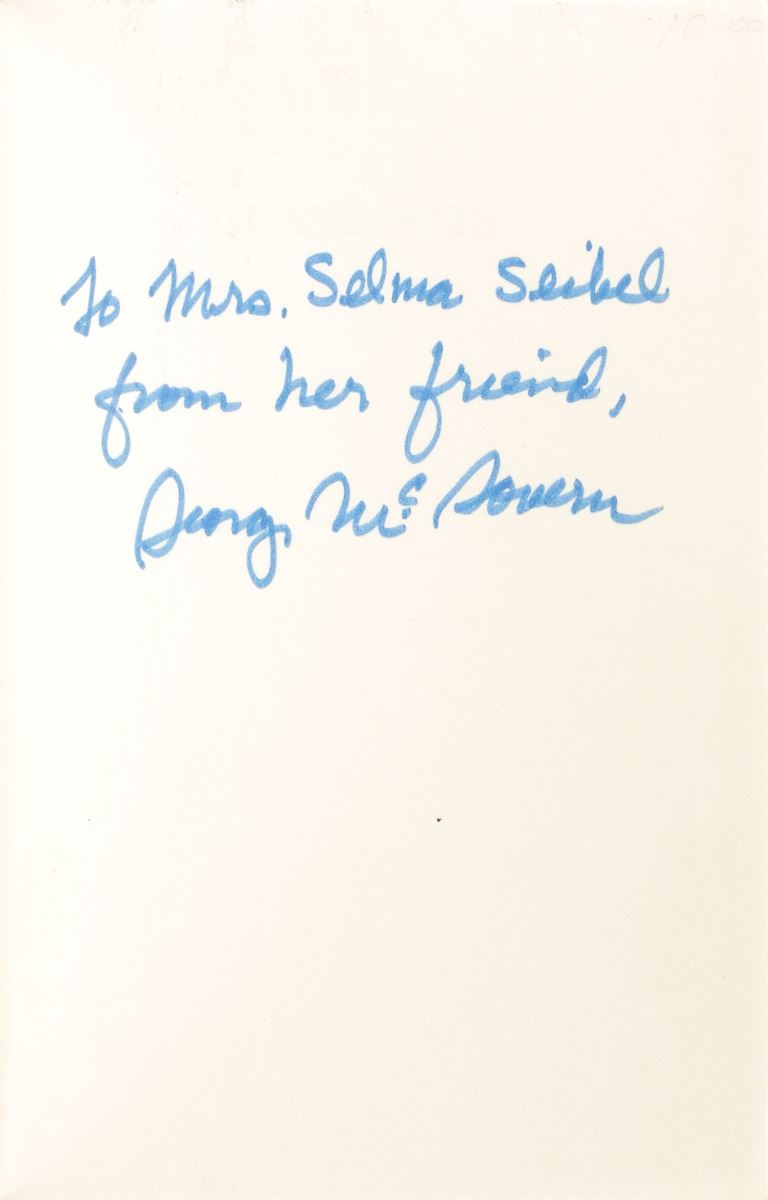 To Mrs. Selma Seibel
from her friend,
George McGovern